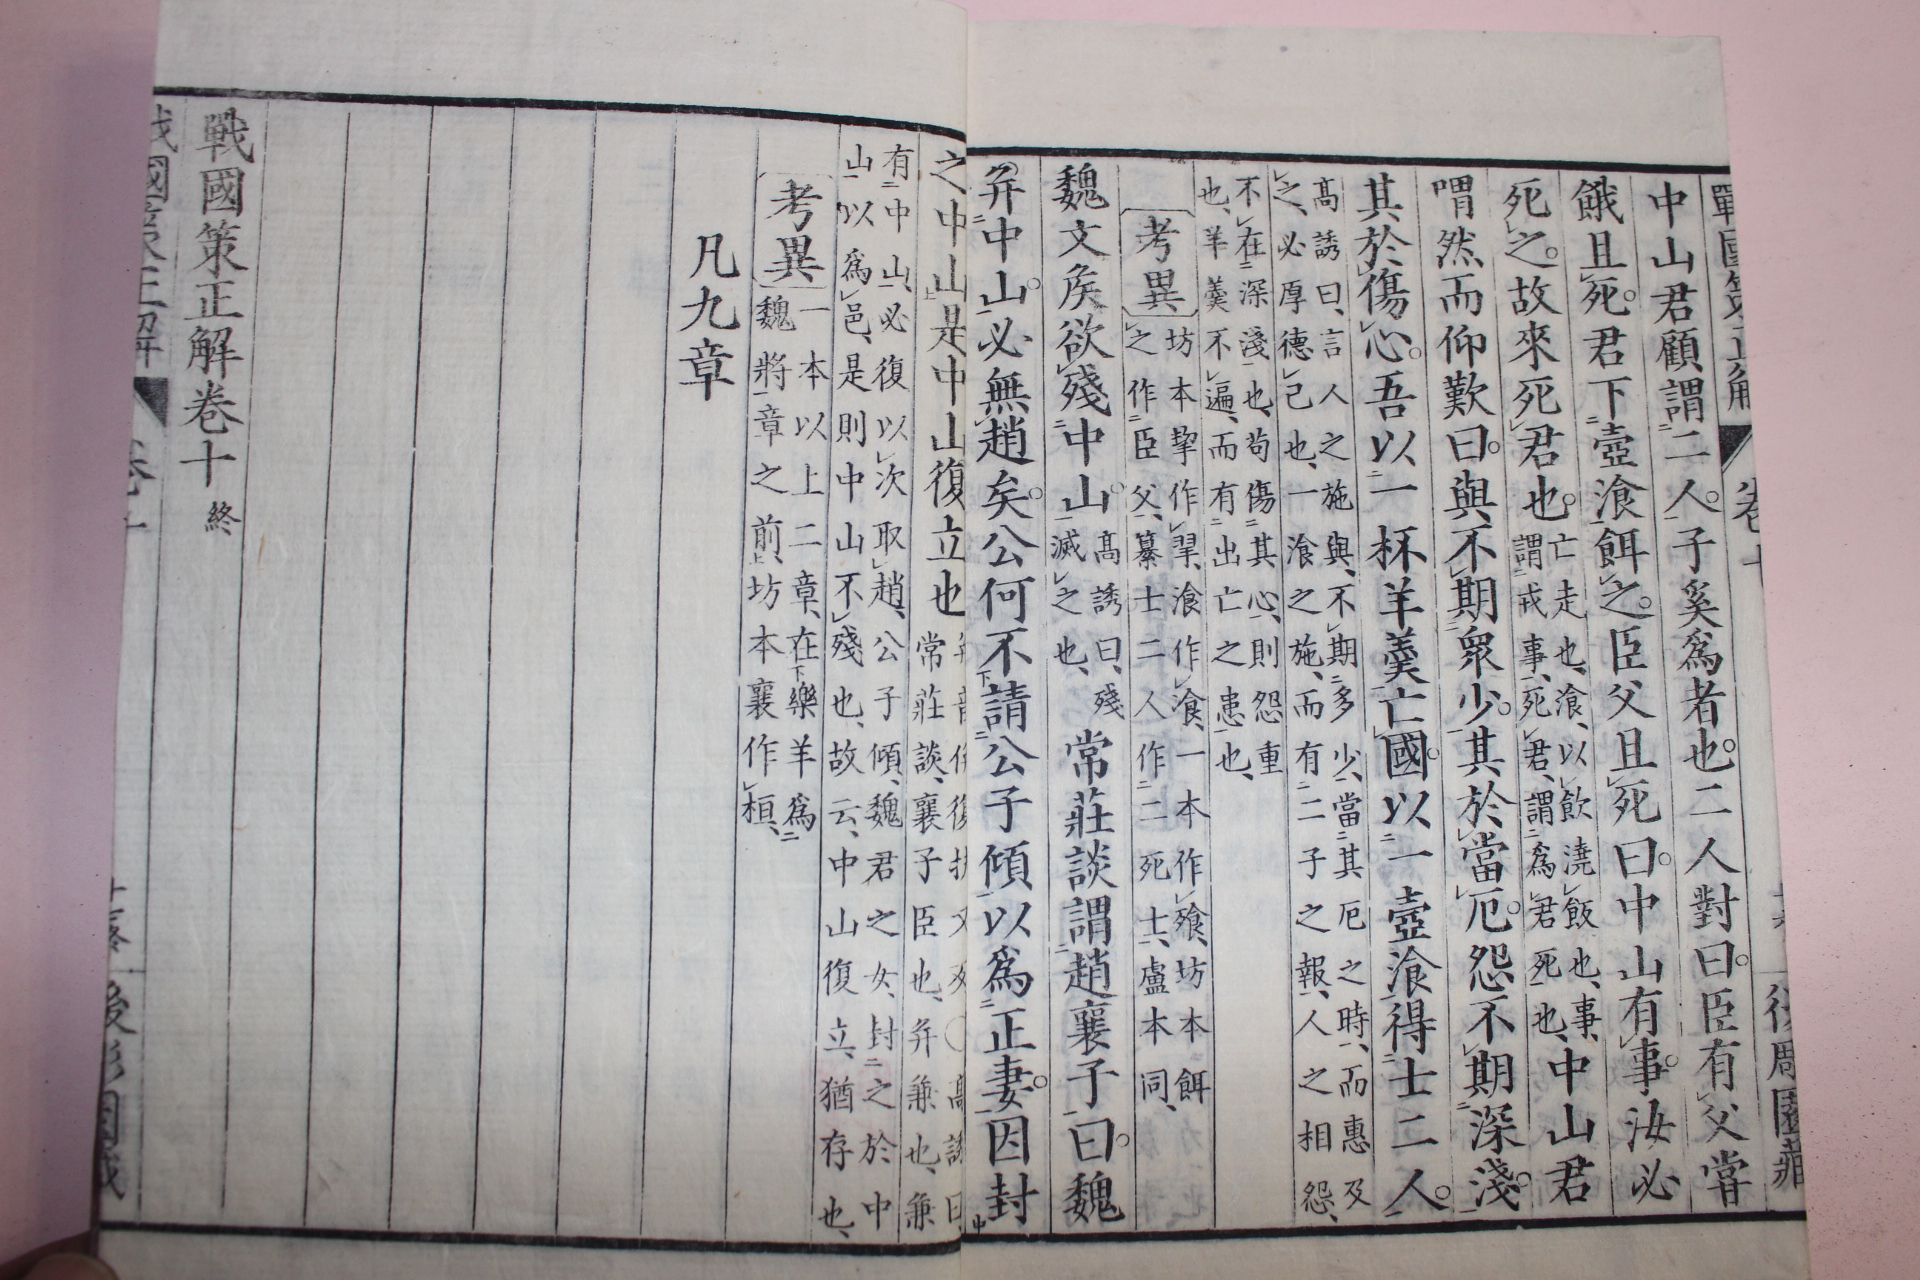 中山君顧謂二人子奚爲者也二人對曰臣有父嘗
餓且死君下壺飡餌之臣父且死曰中山有事汝必
死之故來死君也亡走也飡以飲澆飯也事
謂戎事死君謂爲君死也中山君
喟然而仰歎曰與不期衆少其於當厄怨不期深淺
其於傷心吾以一杯羊羹亡國以一壺飡得士二人
高誘曰言人之施與不期多少當其厄之時而惠及
之必厚德己也一飡之施而有二子之報人之相怨
不在深淺也苟傷其心則怨重
也羊羹不遍而有出亡之患也
考異
坊本挈作挐飡作飧一本作飱坊本餌
之作臣父纂士二人作二死士盧本同
魏文矦欲殘中山高誘曰殘
滅之也常莊談謂趙襄子曰魏
幷中山必無趙矣公何不請公子傾以爲正妻因封
之中山是中山復立也
常莊談襄子臣也幷兼也兼
有中山必復以次取趙公子傾魏君之女封之於中
山以爲邑是則中山不殘也故云中山復立猶存也
考異
一本以上二章在樂羊爲
魏將章之前坊本襄作桓
凡九章
戰國策正解卷十 終
戰國策正解